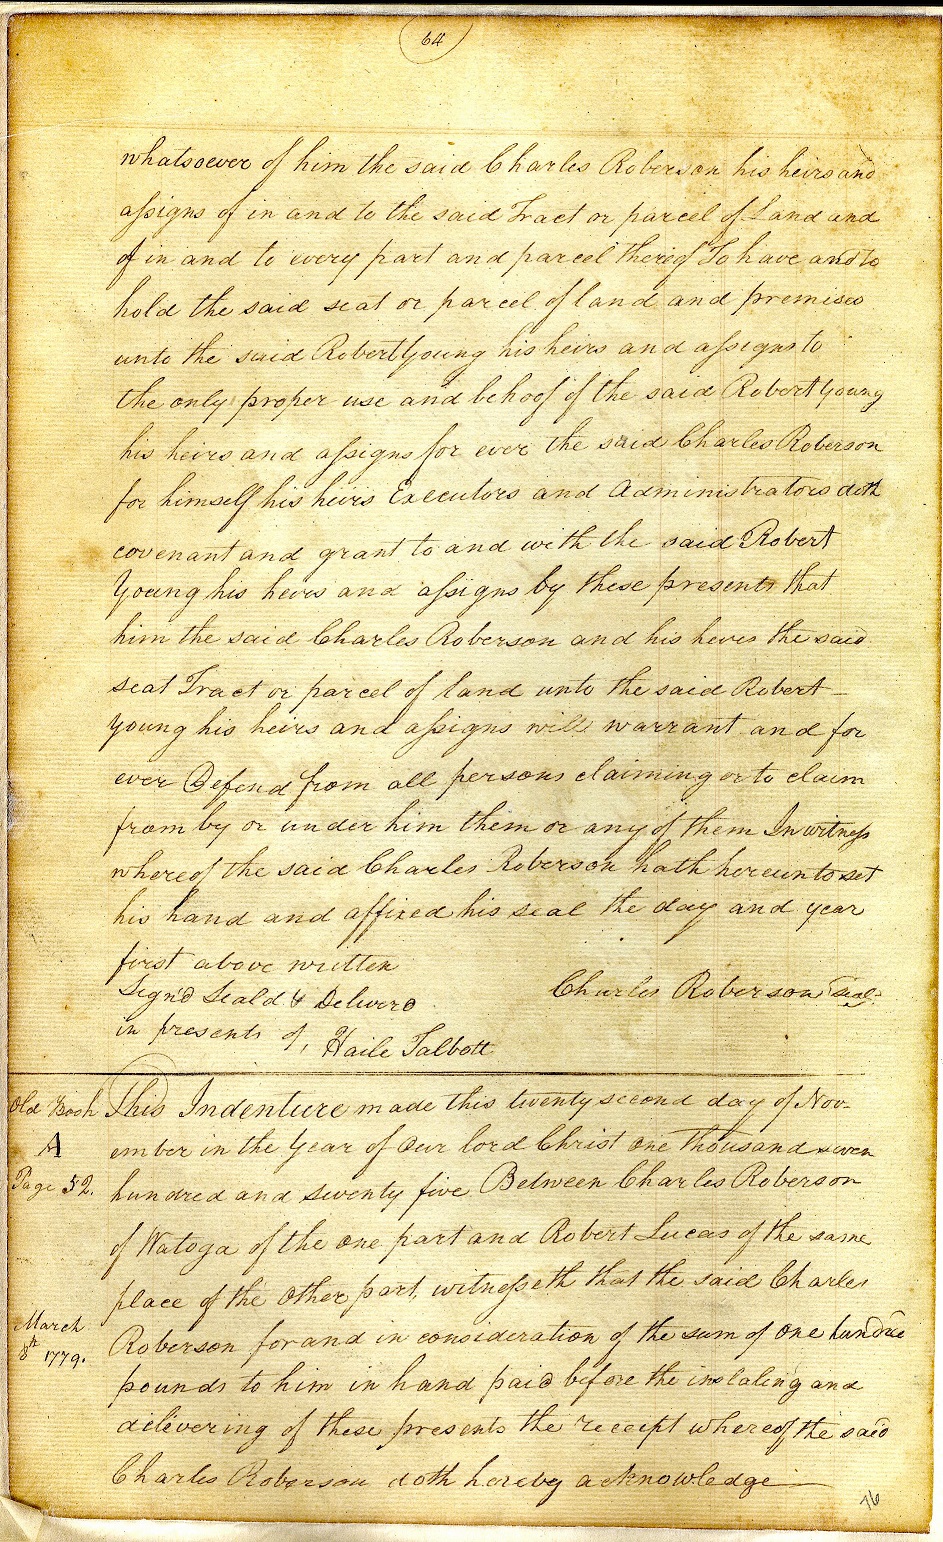 64
whatsoever of him the said Charles Roberson his heirs and
assigns of in and to the said Tract or parcel of Land and
of in and to every part and parcel thereof To have and to
hold the said seat or parcel of land and premises
unto the said Robert Young his heirs and assigns to
the only proper use and behoof of the said Robert Young
his heirs and assigns for ever the said Charles Roberson
for himself his heirs Executors and Administrators doth
covenant and grant to and with the said Robert
Young his heirs and assigns by these presents that
him the said Charles Roberson and his heirs the said
seat Tract or parcel of land unto the said Robert
Young his heirs and assigns will warrant and for
ever Defend from all persons claiming or to claim
from by or under him them or any of them In witness
whereof the said Charles Roberson hath hereunto set
his hand and affixed his seal the day and year
first above written
Sign'd Seald & Deliverd
Charles Roberson Seal
in presents of, Haile Talbott
Old Book
A
Page 52.
March
8th 1779.
This Indenture made this twenty second day of Nov-
ember in the Year of Our lord Christ one Thousand seven
hundred and seventy five Between Charles Roberson
of Watoga of the one part and Robert Lucas of the same
place of the Other part, witnesseth that the said Charles
Roberson for and in consideration of the sum of One hundred
pounds to him in hand paid before the and
delivering of these presents the receipt whereof the said
Charles Roberson doth hereby acknowledge
76